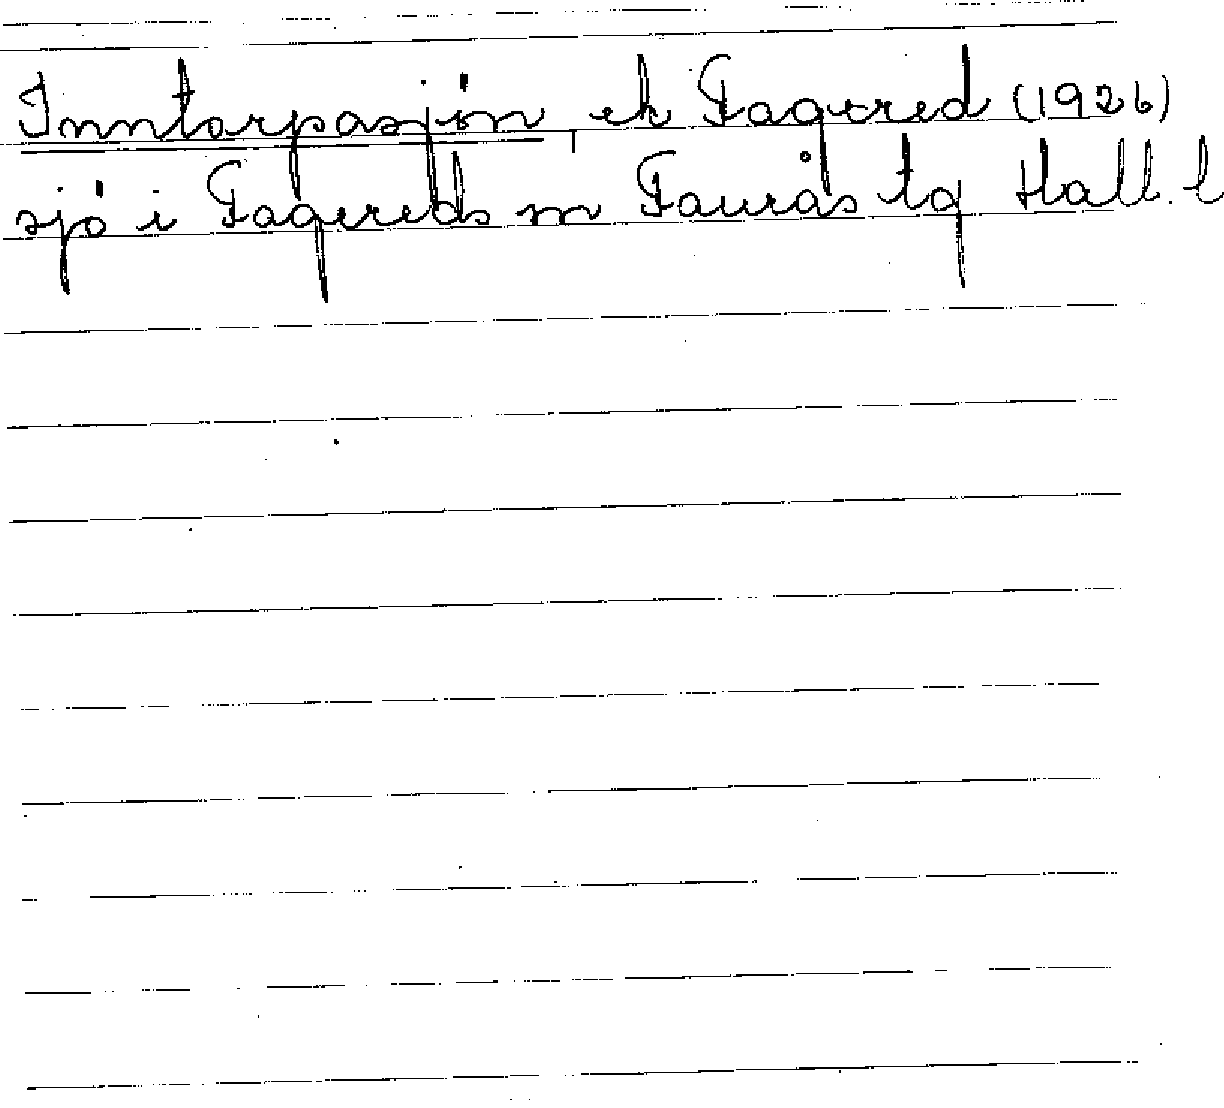 Inntorpasjön, ek Fagered (1926)
sjö i Fagereds sn Faurås tg Hall. l